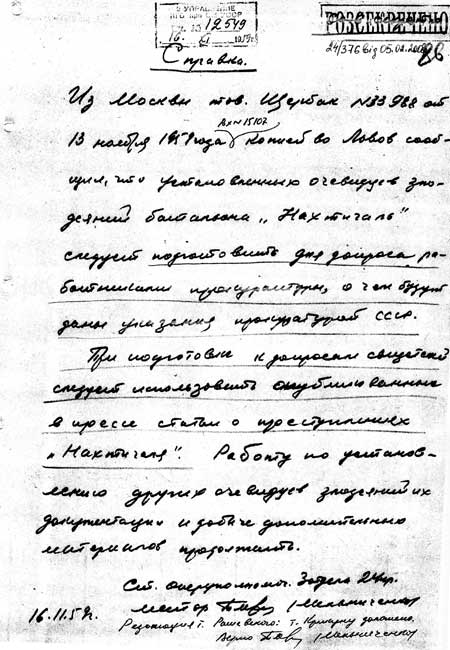 5 УПРАВЛЕНИЕ
12549
16. XI 1959г
РОЗСЕКРЕЧЕНО
24/376 від 05.02.200
86
Справка.
Из Москвы тов. Щербак N 33988 от
Вх N 15107
13 ноября 1959 года копией во Львов сооб-
щил, что установленных очевидцев зло-
деяний батальона „Нахтигаль"
следует подготовить для допроса ра-
ботниками прокуратуры, о чем будут
даны указания прокуратурой СССР.
При подготовке к допросам свидетелей
следует использовать опубликованные
в прессе статьи о преступлениях
„Нахтигаля". Работу по установ-
лению других очевидцев злодеяний их
документации и добыче дополнительных
материалов продолжать.
Ст. оперуполномоч. 3 отдела 2 Упр.
майор (Мельниченко)
16.11.59г.
Резолюция т. доложено.
Верно (Мельниченко)